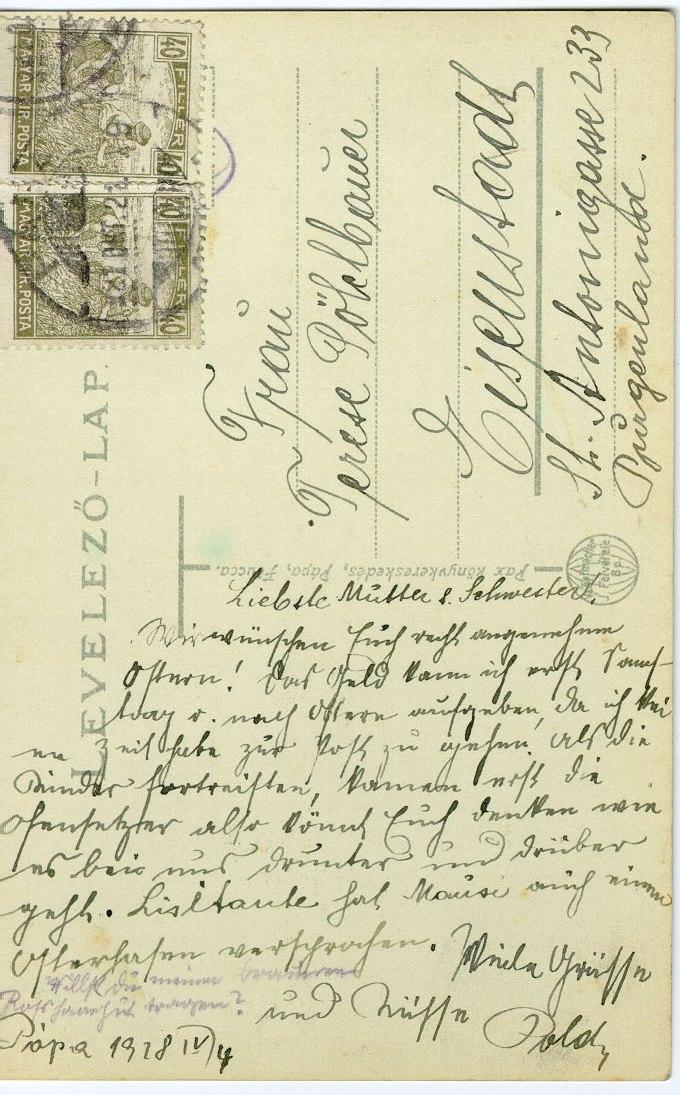 40 FILLER 40
MAGYAR KIR. POSTA
40 FILLER 40
MAGYAR KIR. POSTA
LEVELEZŐ-LAP.
Frau
Terese Pöhlbauer
Eisenstadt
St. Antonigasse 233
Burgenland.
Pax könyvkereskedés, Pápa, Fő ucca.
Liebste Mutter & Schwester!
Wir wünschen Euch recht angenehme
Ostern! Das Geld kann ich erst Sams-
tag o. nach Ostern aufgeben, da ich kei
ne Zeit habe zur Post zu gehen. Als die
Kinder fortreisten, kamen erst die
Ofensetzer also könnt Euch denken wie
es bei uns drunter und drüber
geht. Lisltante hat Mausi auch einen
Osterhasen versprochen. Viele Grüsse
und Küsse Pold
Willst du meinen braunen
Rosshaarhut tragen?
Pápa 1928 IV/4